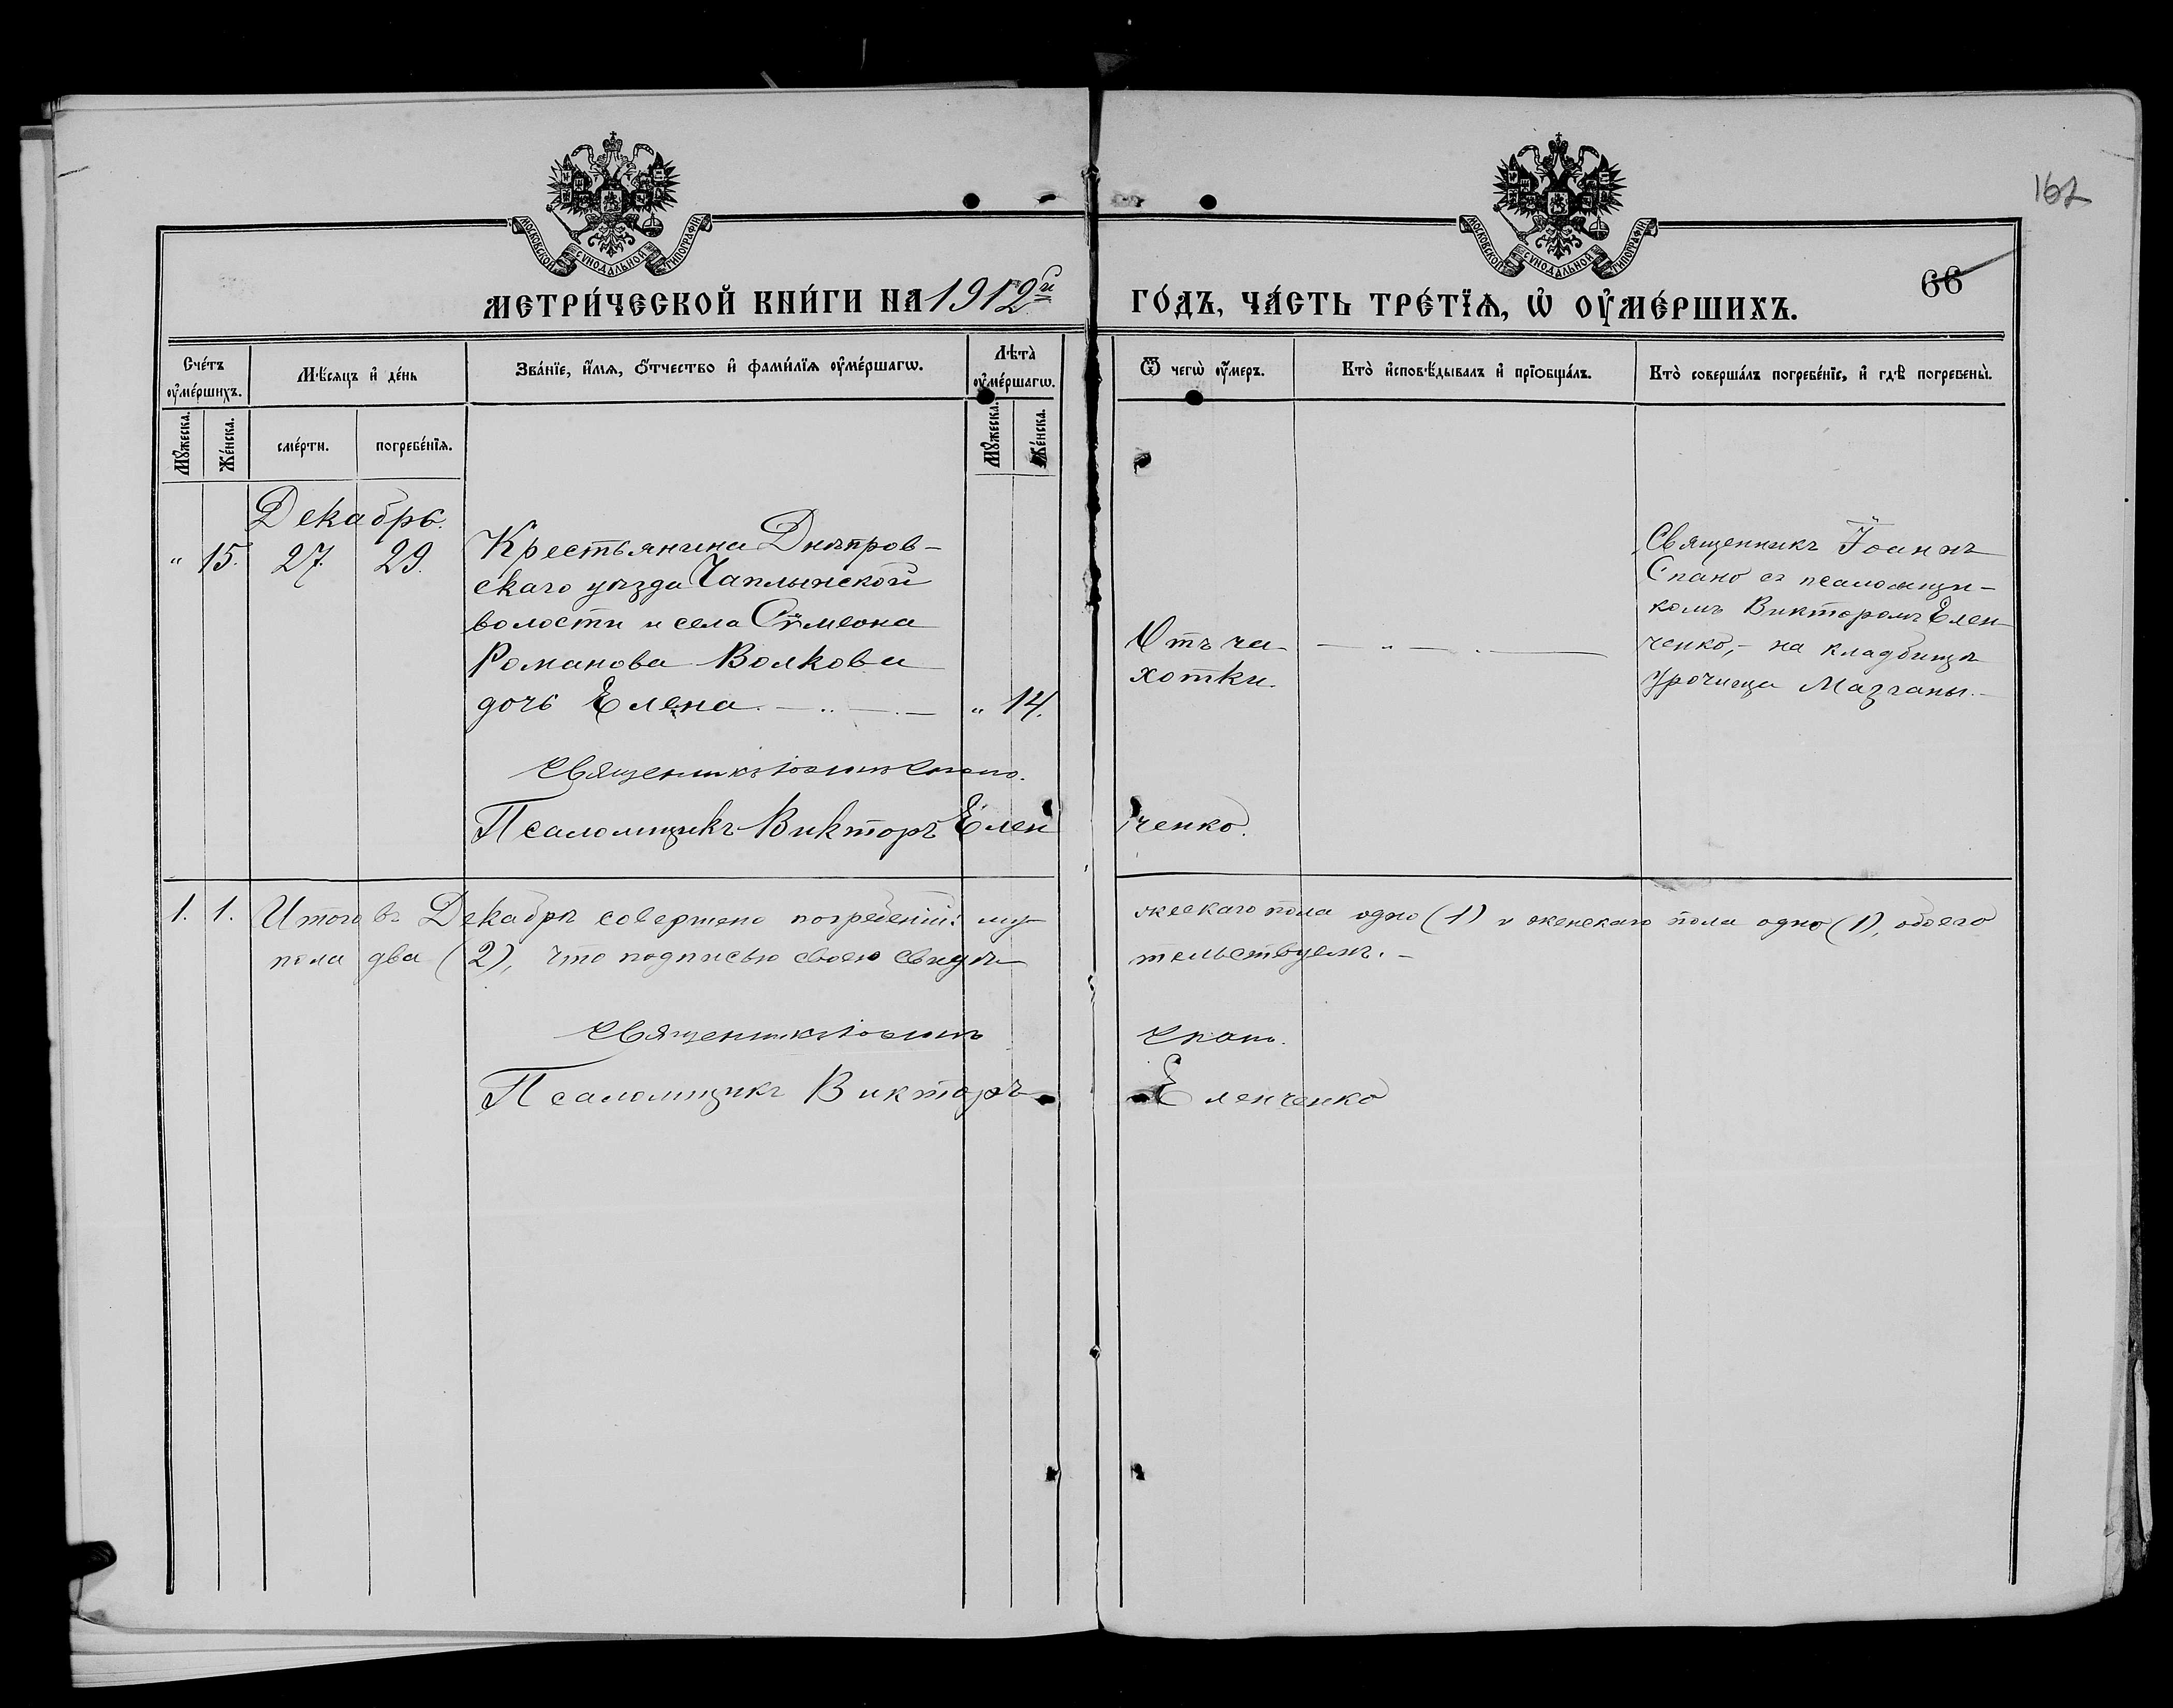 162
МОСКОВСКОЙ СѴНОДАЛЬНОЙ ТИПОГРАФІИ
МОСКОВСКОЙ СѴНОДАЛЬНОЙ ТИПОГРАФІИ
66
МЕТРИ́ЧЕСКОЙ КНИ́ГИ НА 1912й ГО́ДЪ, ЧА́СТЬ ТРЕ́ТЇѦ, Ѡ҆ ОУ҆МЕ́РШИХЪ.
Сче́тъ оу҆ме́ршихъ.
Мꙋ́жеска.
Же́нска.
Мѣ́сяцъ и҆ де́нь
сме́рти.
погребе́нїѧ.
Зва́нїе, и҆́мѧ, ѻ҆́тчество и҆ фами́лїѧ оу҆ме́ршагѡ.
Лѣ̀та̀ оу҆ме́ршагѡ.
Мꙋ́жеска.
Же́нска.
Ѿ чегѡ̀ оу҆́меръ.
Кто̀ и҆сповѣ́дывалъ и҆ прїѡбща́лъ.
Кто̀ соверша́лъ погребе́нїе, и҆ гдѣ̀ погребены̀.
Декабрь.
" 15. 27. 29.
Крестьянина Днѣпров-
скаго уѣзда Чаплынской
волости и села Сѵмеона
Романова Волкова
дочь Елена. — „ — . —
" 14.
Отъ ча-
хотки.
— „ — . —
Священникъ Іоаннъ
Спано съ псаломщи-
комъ Викторомъ Елен-
ченко, - на кладбищѣ
урочища Мазганы. -
Священникъ Іоаннъ Спано.
Псаломщикъ Викторъ Еленченко.
1. 1. Итого въ Декабрѣ совершено погребеній: мужескаго пола одно (1) и женскаго пола одно (1), обоего
пола два (2), что подписью своею свидѣтельствуемъ. -
Священникъ Іоаннъ Спано.
Псаломщикъ Викторъ Еленченко